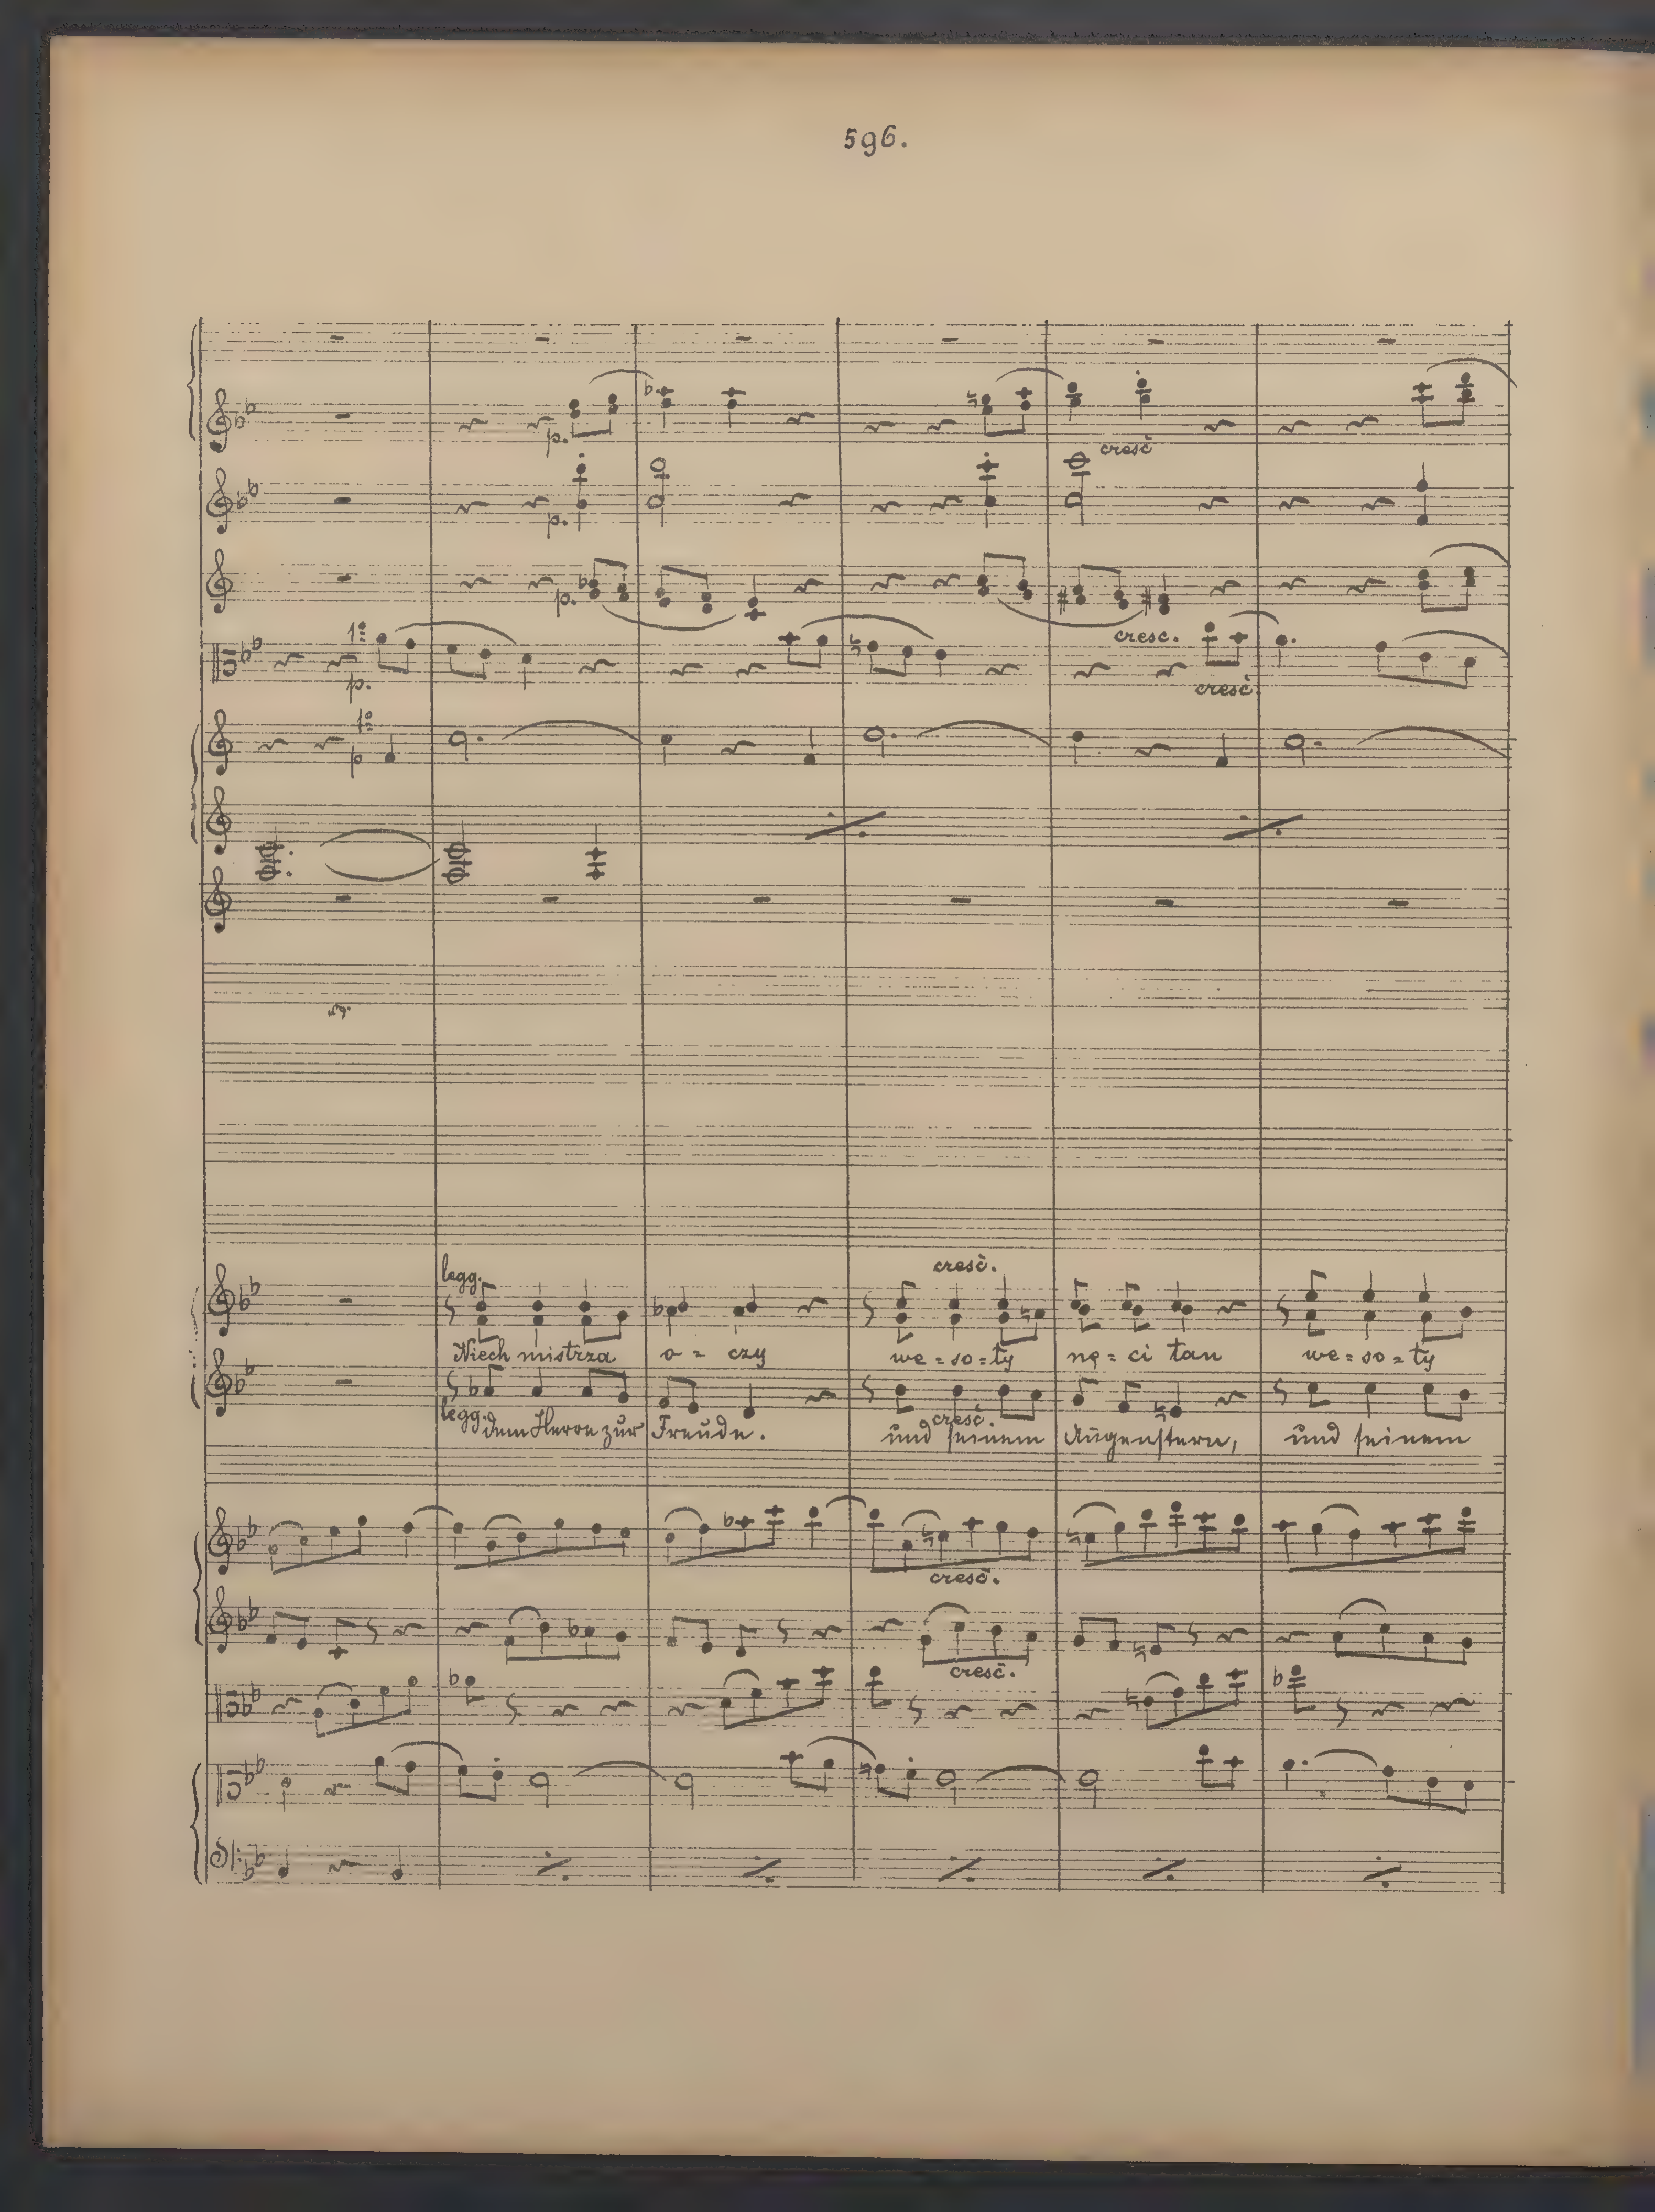 596.
p.
cresc̃
p.
p.
cresc.
1º
p.
cresc̃
1º
p
legg.
cresc̃.
Niech mistrza o = czy we = so = ły nę = ci tan we = so = ły
legg.
cresc̃.
dem Herrn zur Freude. und seinem Augenstern, und seinem
cresc̃.
cresc̃.